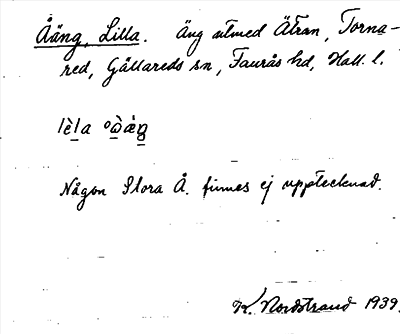 Åäng, Lilla. Äng utmed Ätran, Torna-
red, Gällareds sn, Faurås hd, Hall. l.
Någon Stora Å. finnes ej upptecknad.
K. Nordstrand 1939.